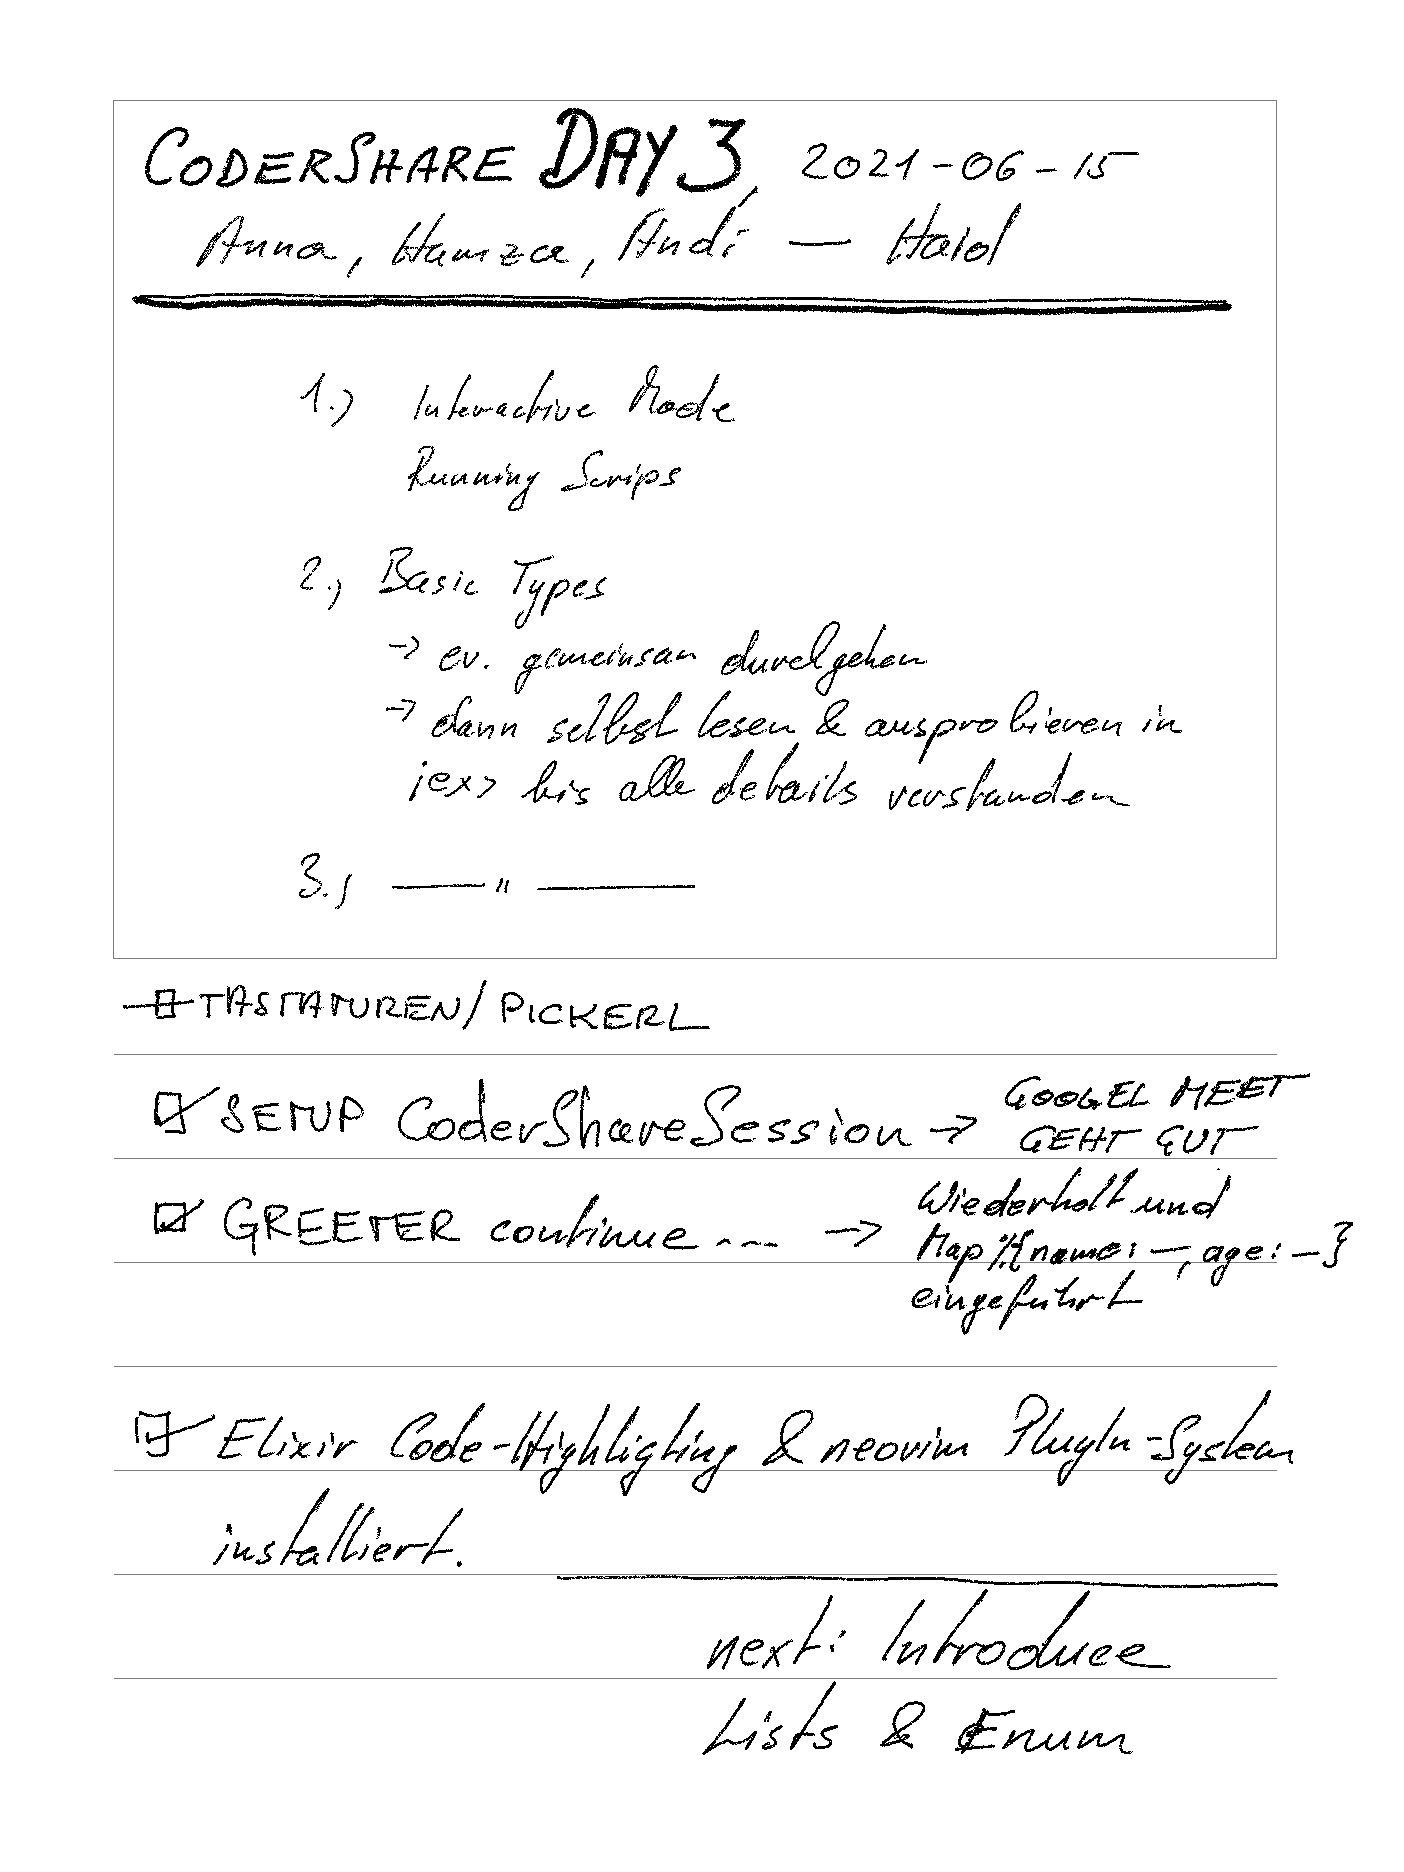 CODERSHARE DAY 3, 2021-06-15
Anna, Hamzca, Andi — Haid
1.) Interactive Mode
Running Scrips
2.) Basic Types
→ ev. gemeinsam durchgehen
→ dann selbst lesen & ausprobieren in
iex> bis alle details verstanden
3.) — " —
TASTATUREN/PICKERL
☑ SETUP CoderShareSession → GOOGEL MEET
GEHT GUT
☑ GREETER continue ... → Wiederholt und
Map %{name: —, age: —}
eingeführt
☑ Elixir Code-Highligting & neovim PlugIn-System
installiert.
next: Introduce
Lists & Enum